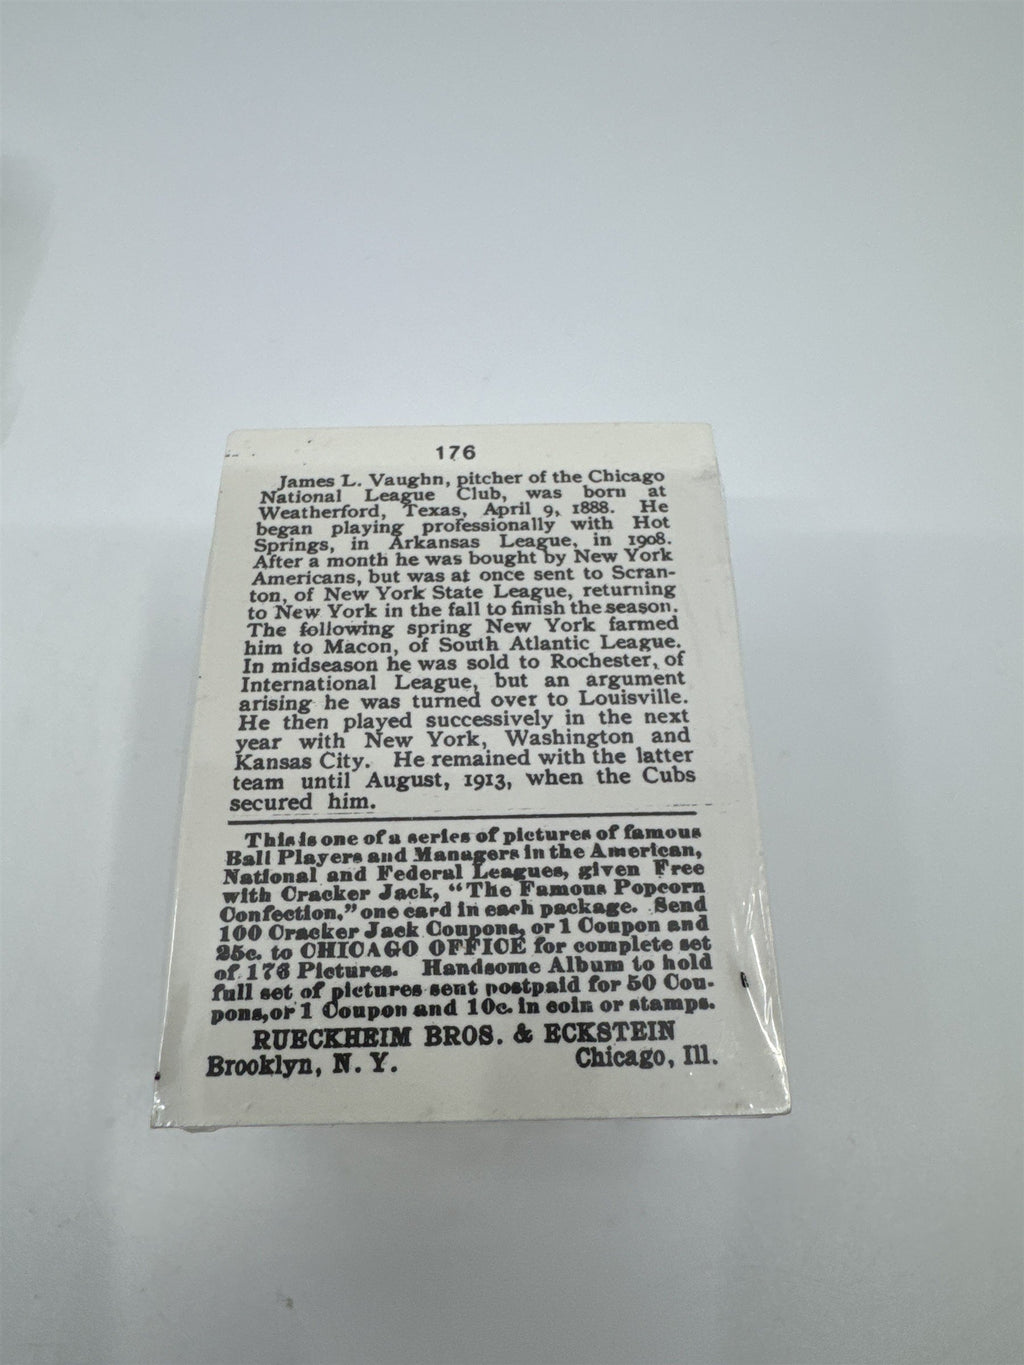 176
James L. Vaughn, pitcher of the Chicago
National League Club, was born at
Weatherford, Texas, April 9, 1888. He
began playing professionally with Hot
Springs, in Arkansas League, in 1908.
After a month he was bought by New York
Americans, but was at once sent to Scran-
ton, of New York State League, returning
to New York in the fall to finish the season.
The following spring New York farmed
him to Macon, of South Atlantic League.
In midseason he was sold to Rochester, of
International League, but an argument
arising he was turned over to Louisville.
He then played successively in the next
year with New York, Washington and
Kansas City. He remained with the latter
team until August, 1913, when the Cubs
secured him.
This is one of a series of pictures of famous
Ball Players and Managers in the American,
National and Federal Leagues, given Free
with Cracker Jack, "The Famous Popcorn
Confection," one card in each package. Send
100 Cracker Jack Coupons, or 1 Coupon and
25c. to CHICAGO OFFICE for complete set
of 176 Pictures. Handsome Album to hold
full set of pictures sent postpaid for 50 Cou-
pons, or 1 Coupon and 10c. in coin or stamps.
RUECKHEIM BROS. & ECKSTEIN
Brooklyn, N. Y. Chicago, Ill.